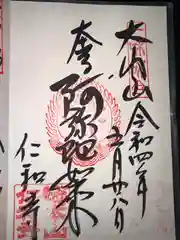 大内山
令和四年
五月廿八日
奉
阿弥陀如来
仁和寺